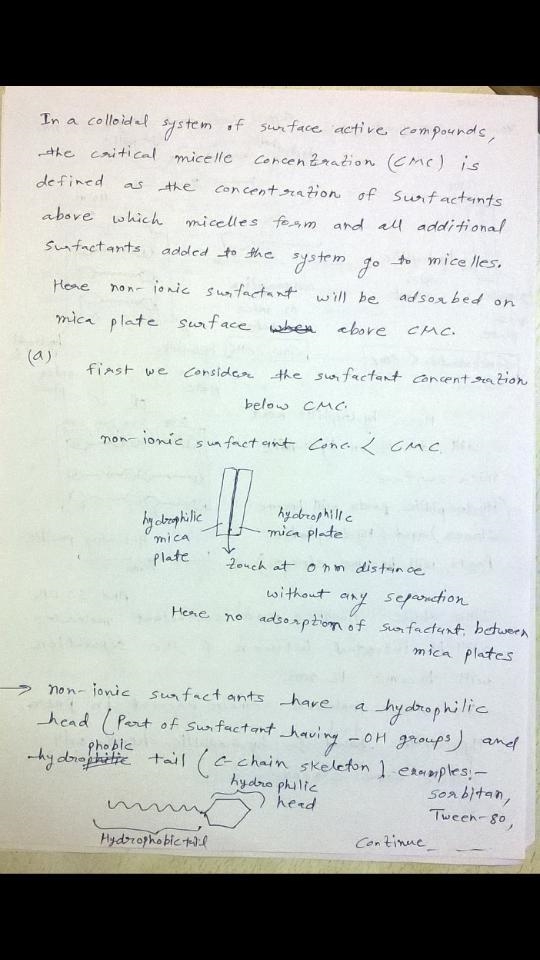 In a colloidal system of surface active compounds,
the critical micelle concentration (CMC) is
defined as the concentration of surfactants
above which micelles form and all additional
surfactants added to the system go to micelles.
Here non-ionic surfactant will be adsorbed on
mica plate surface when above CMC.
(a)
first we consider the surfactant concentration
below CMC.
non-ionic surfactant conc. < CMC.
hydrophilic
mica
plate
hydrophilic
mica plate
touch at 0 nm distance
without any separation
Here no adsorption of surfactant between
mica plates
→ non-ionic surfactants have a hydrophilic
head (Part of surfactant having -OH groups) and
hydrophobic tail (C-chain skeleton) examples:-
sorbitan,
Tween-80,
hydrophilic
head
Hydrophobic tail
Continue